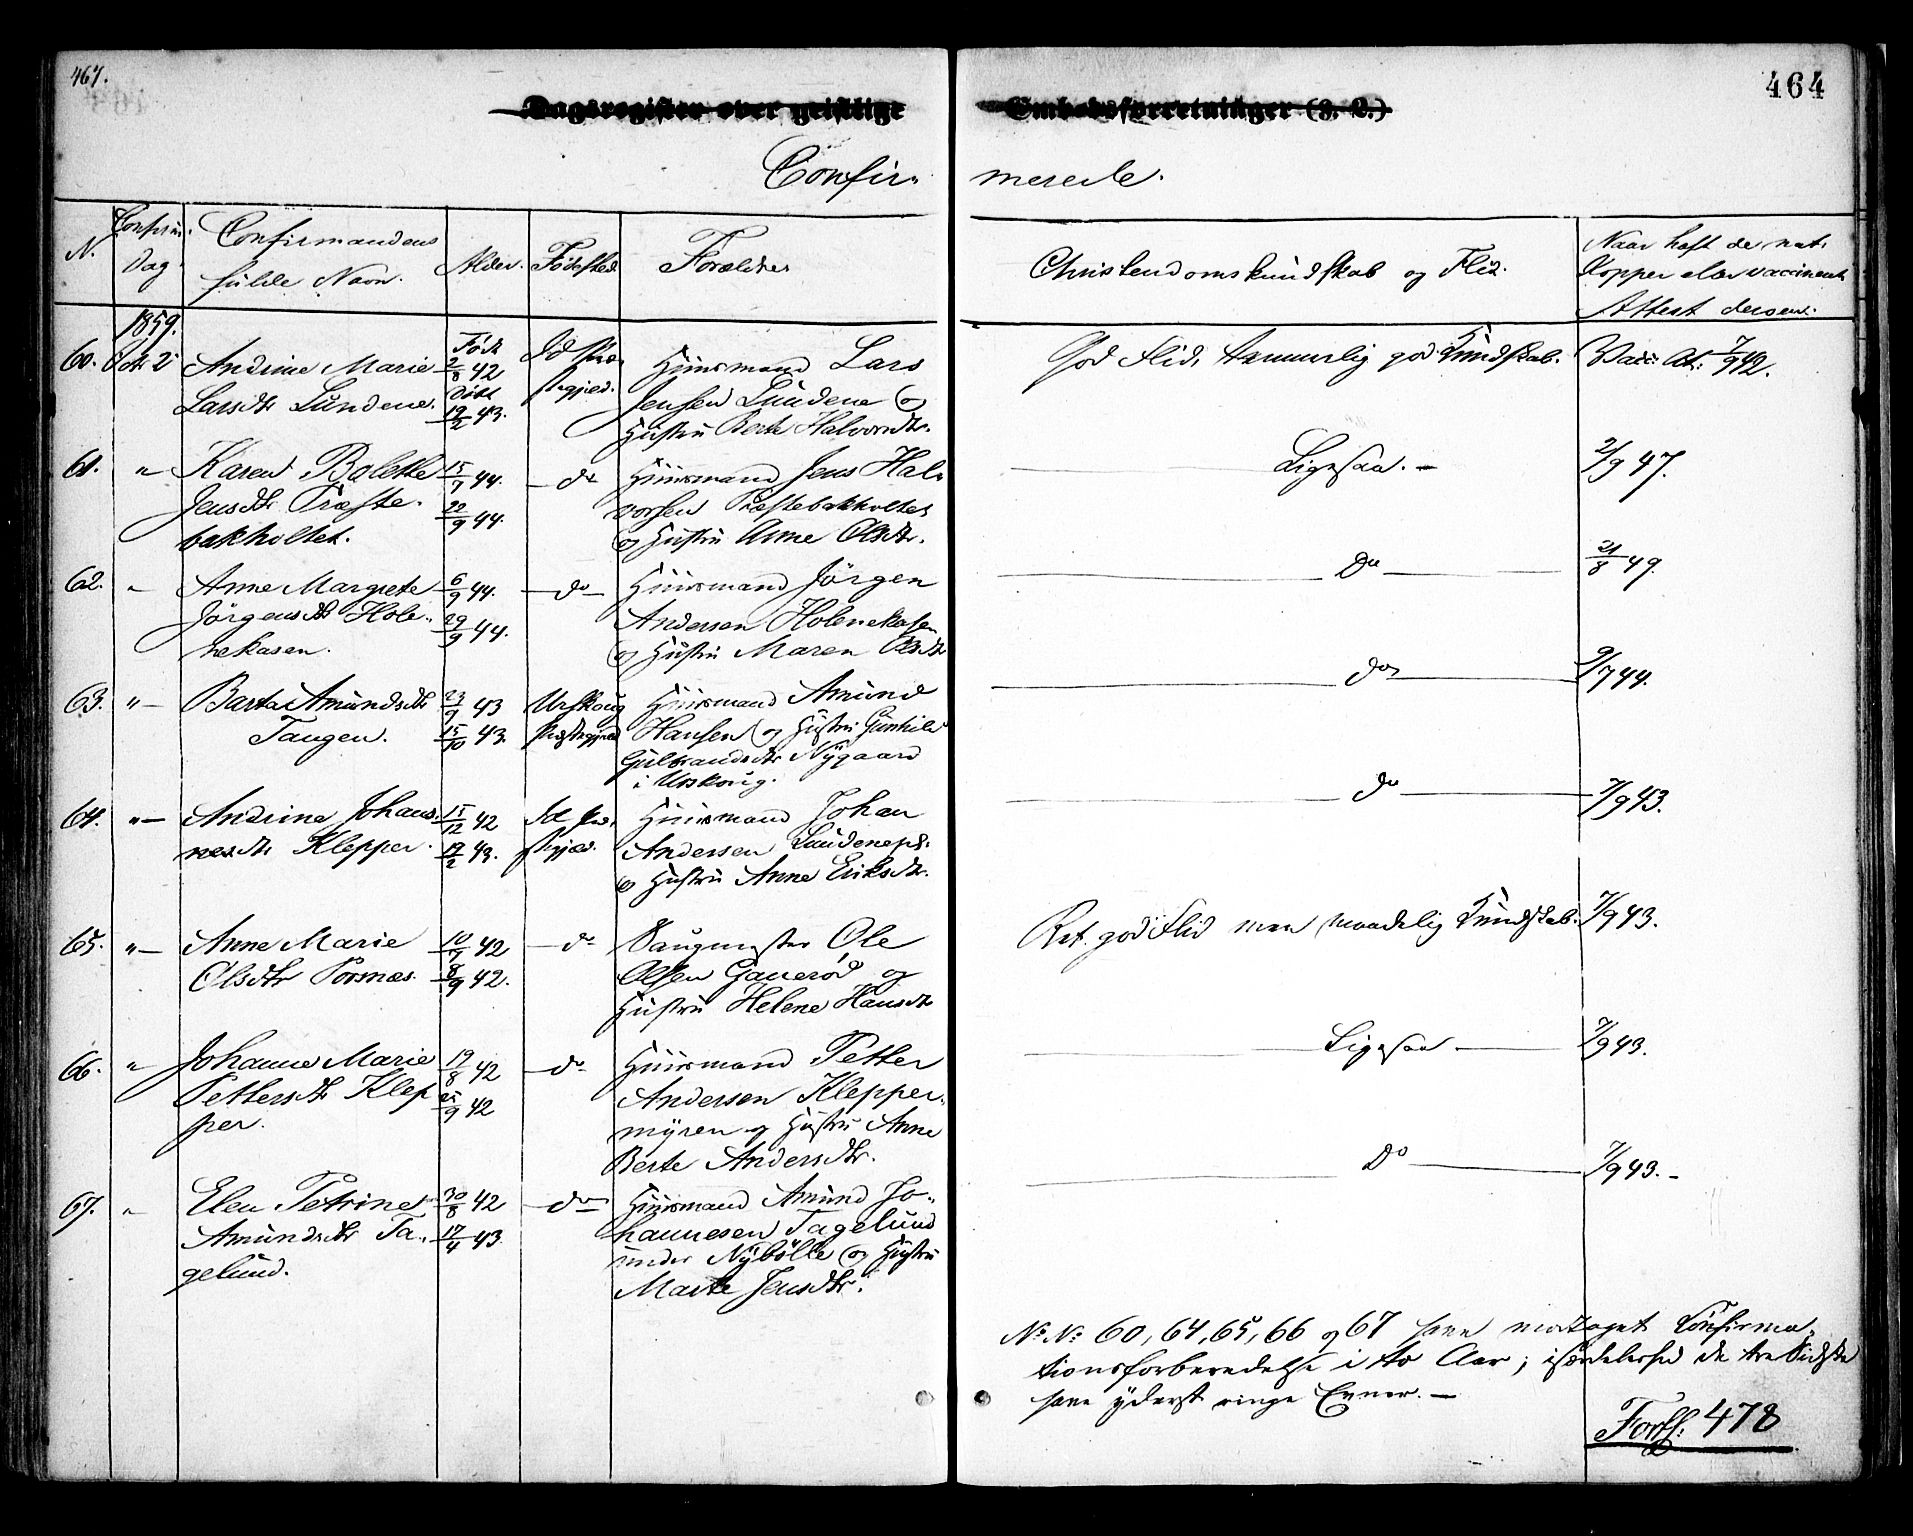 467.
464
Dagsregister over geistlige Embedsforretninger (z. L.)
Confir- merede.
N.
Confirm: Dag.
Confirmandens fulde Navn.
Alder.
Fødested
Forældre
Christendomskundskab og Flid.
Naar haft de nat: Kopper eller vaccineret Attest derom.
1859.
60. Octr 2
Andrine Marie
Larsdtr Lundene.
Født 2/8 42
Døbt 19/2 43.
Id Præ-
stegjed.
Huusmand Lars
Jensen Lundene og
Hustru Berte Halvorsdtr.
God Flid, temmelig god Kundskab.
Vacc: At: 7/9 42.
61. "
Karen Bolette
Jensdtr Præste-
bakholtet.
15/7 44.
22/9 44.
do
Huusmand Jens Hal-
vorsen Præstebakholtet
og Hustru Anne Olsdtr.
Ligesaa.
2/9 47.
62. "
Anne Margrete
Jörgensdtr Hole-
nekasen.
6/9 44.
29/9 44.
do
Huusmand Jörgen
Andersen Holenekasen
og Hustru Maren Olsdtr
Do
21/8 49.
63. "
Berta Amundsdtr
Tangen.
23/9 43
15/10 43.
Urskoug
Præstegjed
Huusmand Amund
Hansen og Hustru Gunhild
Gulbrandsdtr Nygaard
i Urskoug.
do
9/7 44.
64. "
Andrine Johan-
nesdtr Klepper.
15/12 42
19/2 43.
Id Præ-
stegjed.
Huusmand Johan
Andersen Lundenepl.
og Hustru Anne Eriksdtr.
do
7/9 43.
65. "
Anne Marie
Olsdtr Torsnæs.
10/7 42
8/9 42.
do
Saugmester Ole
Olsen Gauerød og
Hustru Helene Hansdtr
Ret god Flid men maadelig Kundskab.
7/9 43.
66. "
Johanne Marie
Pettersdtr Klep
per.
19/8 42
25/9 42
do
Huusmand Petter
Andersen Klepper-
myren og Hustru Anne
Berte Andersdtr.
Ligesaa
7/9 43.
67. "
Elen Petrine
Amundsdtr Ta-
gelund.
30/8 42
17/4 43
do
Huusmand Amund Jo-
hannesen Tagelund
under Nybölle og Hustru
Marte Jensdtr.
Do
7/9 43.
No No 60, 64, 65, 66 og 67 have modtaget Confirma-
tionsforberedelse i to Aar; isærdeleshed de tre Sidste
have yderst ringe Evner.
Forts. 478